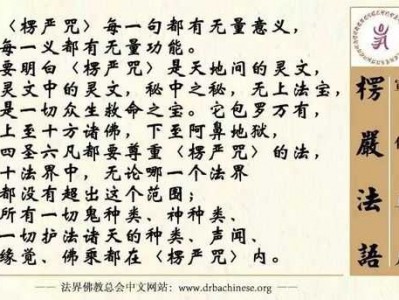 《楞严咒》每一句都有无量意义，
每一义都有无量功能。
要明白《楞严咒》是天地间的灵文，
灵文中的灵文，秘中之秘，无上法宝，
是一切众生救命之宝。它包罗万有，
上至十方诸佛，下至阿鼻地狱，
四圣六凡都要尊重《楞严咒》的法，
十法界中，无论哪一个法界
都没有超出这个范围；
所有一切鬼种类、神种类、
一切护法诸天的种类、声闻、
缘觉、佛乘都在《楞严咒》内。
楞嚴法語
法界佛教总会中文网站：www.drbachinese.org